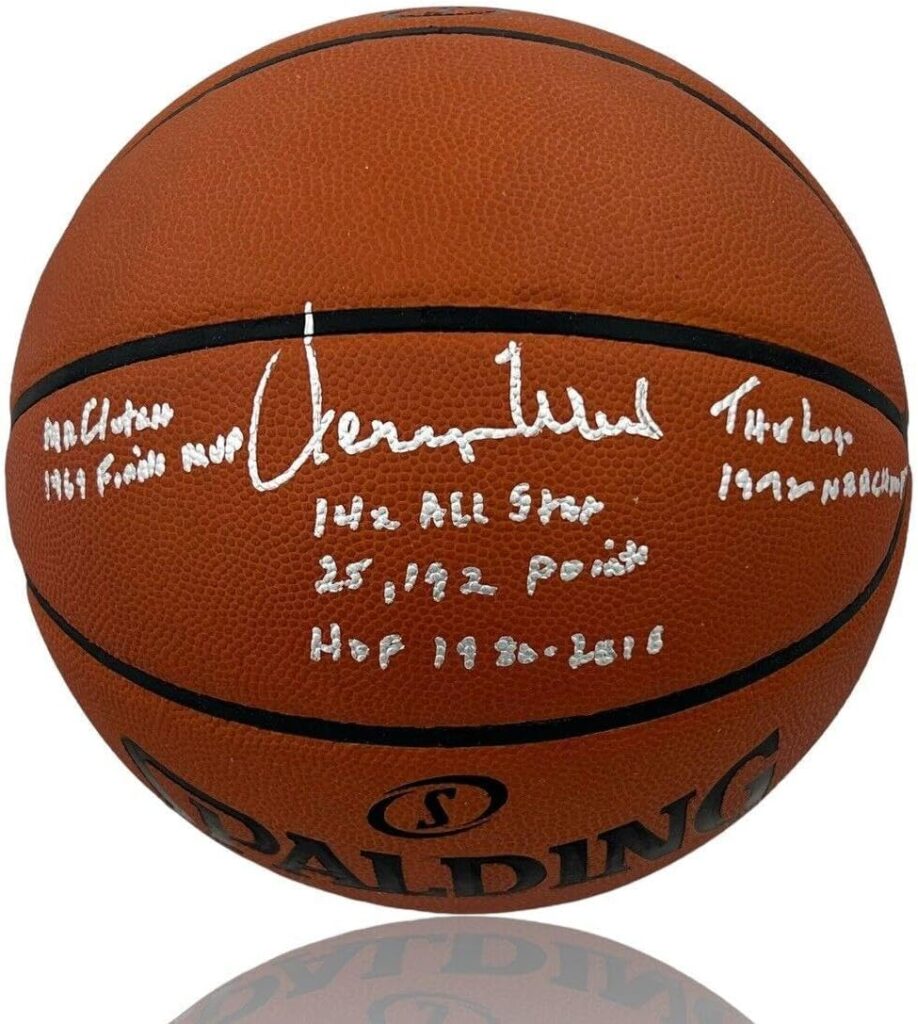 Mr Clutch
1969 Finals MVP
Jerry West
14x ALL Star
25,192 Points
HOF 1980-2010
The Logo
1972 NBA Champ
S
SPALDING